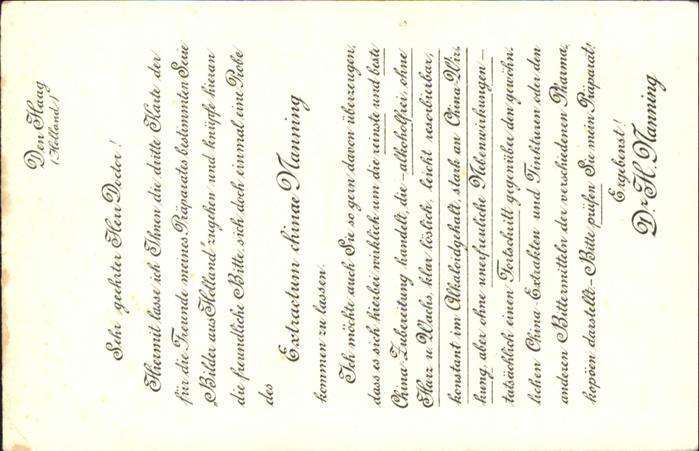 Den Haag
(Holland)
Sehr geehrter Herr Doctor!
Hiermit lasse ich Ihnen die dritte Karte der
für die Freunde meines Präparates bestimmten Serie
„Bilder aus Holland" zugehen und knüpfe hieran
die freundliche Bitte, sich doch einmal eine Probe
des
Extractum chinae Nanning
kommen zu lassen.
Ich möchte auch Sie so gern davon überzeugen,
dass es sich hierbei wirklich um die reinste und beste
China-Zubereitung handelt, die – alkoholfrei, ohne
Harz u. Wachs, klar löslich, leicht resorbierbar,
konstant im Alkaloidgehalt, stark an China-Wir-
kung, aber ohne unerfreuliche Nebenwirkungen –
tatsächlich einen Fortschritt gegenüber den gewöhn-
lichen China-Extrakten und Tinkturen oder den
anderen Bittermitteln der verschiedenen Pharma-
kopöen darstellt – Bitte prüfen Sie mein Präparat!
Ergebenst!
Dr H. Nanning